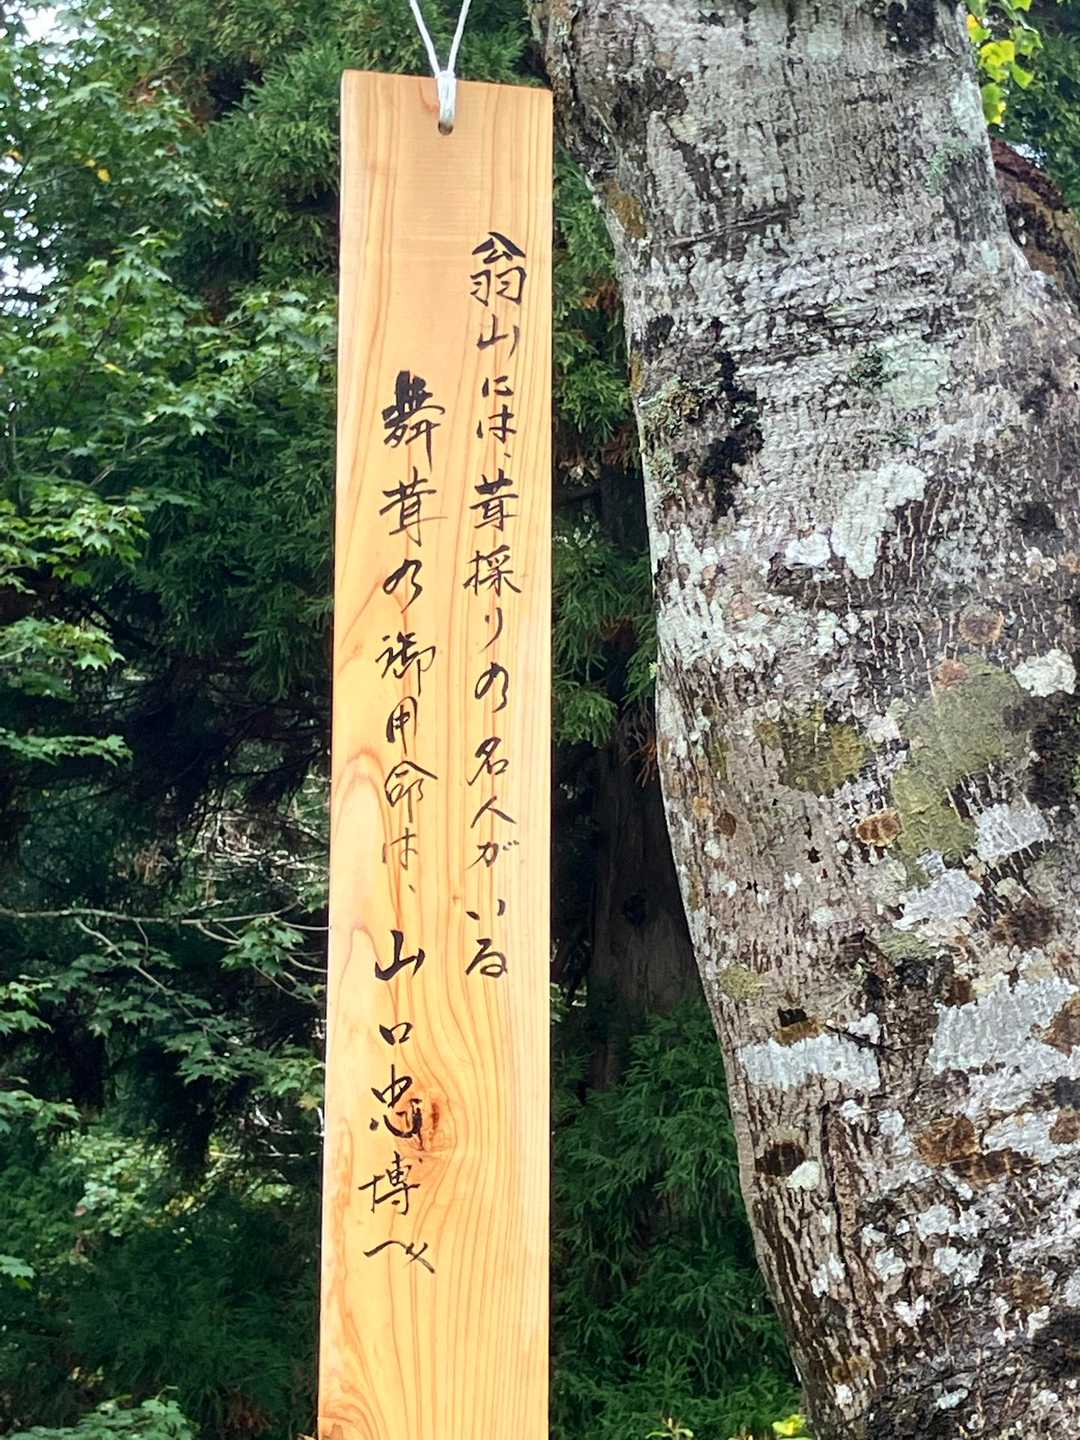 翁山には、茸採りの名人がいる
舞茸の御用命は、山口忠博へ